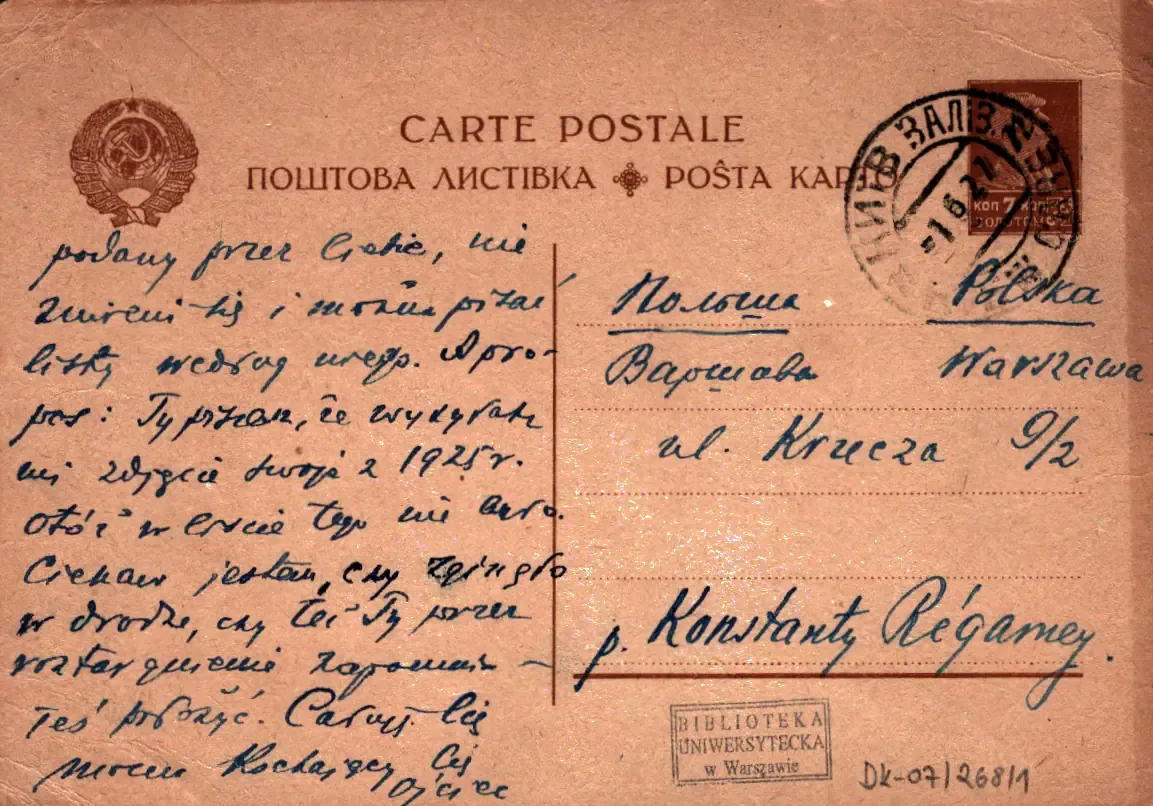 CARTE POSTALE
ПОШТОВА ЛИСТІВКА POŜTA KARTO
КИЇВ ЗАЛІЗ.
КОП 7 КОП
ЗОЛОТОМ
podany przez Ciebie, nie
zmieni się i można pisać
listy według niego. Apro-
pos: Ty piszesz, że wysyłasz
mi zdjęcie swoje z 1925 r.
Otóż w liście tego nie było.
Ciekaw jestem, czy zginęło
w drodze, czy też Ty przez
roztargnienie zapomnia-
łeś położyć. Całuję Cię
mocno Kochający Cię
Ojciec
Польша Polska
Варшава Warszawa
ul. Krzecza 9/2
p. Konstanty Régamey.
BIBLIOTEKA
UNIWERSYTECKA
w Warszawie
Dk-07/268/1